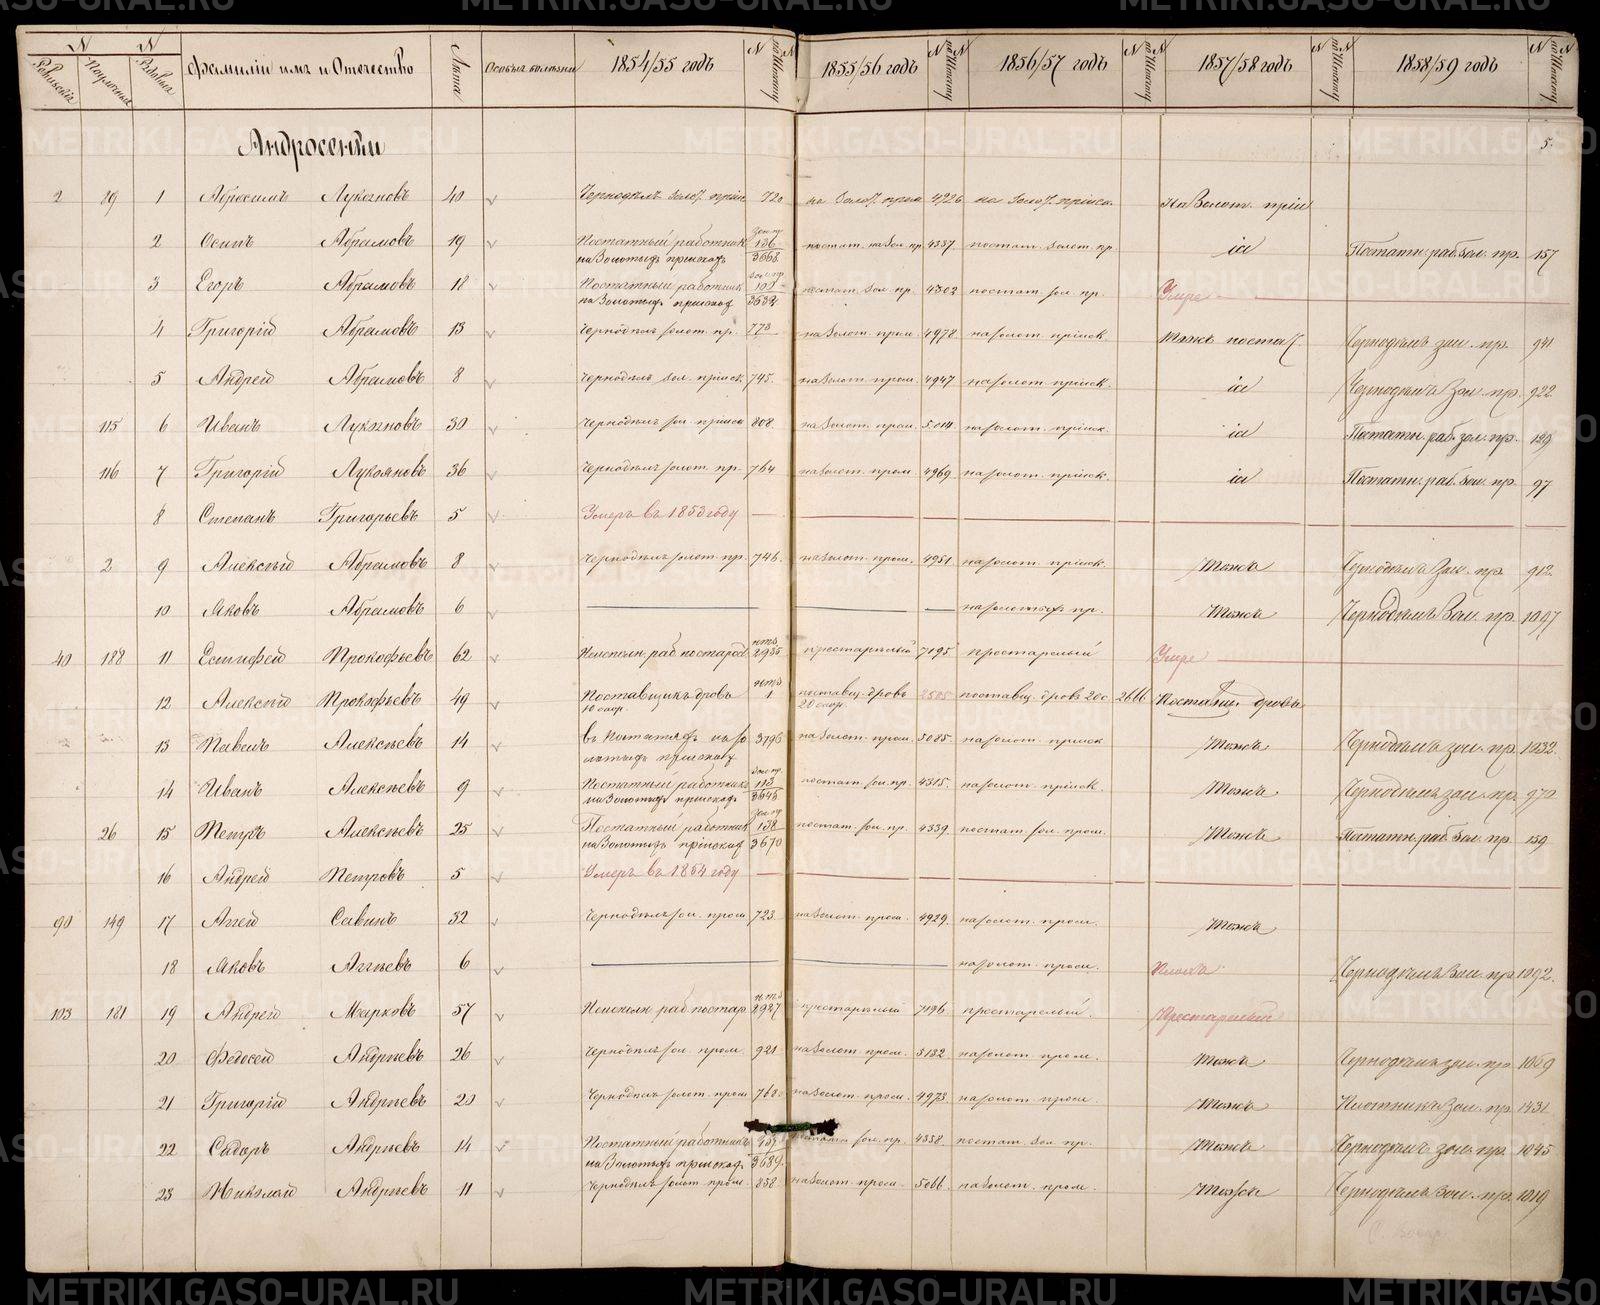 METRIKI.GASO-URAL.RU
N N
Ревизскій Поулучный Рядовыя Фамиліи имъ и Отечество Лѣта Особыя болѣзни 1854/55 годъ N по Штату 1855/56 годъ N по Штату 1856/57 годъ N по Штату 1857/58 годъ N по Штату 1858/59 годъ N по Штату
Андросенки 5.
2 89 1 Абросимъ Лукояновъ 40 Чернодѣлъ золот. пріис 720 на Золот. пром 4926 на золот. пріиск. На Золот. пріи
2 Осипъ Абрамовъ 19 Постатный работник на Золотыхъ пріискахъ 136 3668 постат. на Зол. пр. 4337 постат. золот. пр. іd Постатн. раб. зол. пр. 157
3 Егоръ Абрамовъ 18 Постатный работник на Золотыхъ пріискахъ 3632 постат. зол. пр. 4303 постат. зол. пр. Умре
4 Григорій Абрамовъ 13 Чернодѣлъ золот. пр. 773 на Золот. пром. 4978 на золот. пріиск. Тожъ постат Чернодѣлъ зол. пр. 941
5 Андрей Абрамовъ 8 Чернодѣлъ зол. пріиск. 745. на Золот. пром. 4947 на золот. пріиск. іd Чернодѣлъ Зол. пр. 922
115 6 Иванъ Лукояновъ 30 Чернодѣлъ зол. пріиск 808 на Золот. пром. 5014 на золот. пріиск. іd Постатн. раб. зол. пр. 129
116 7 Григорій Лукояновъ 36 Чернодѣлъ золот. пр. 764 на Золот. пром 4969 на золот. пріиск. іd Постатн. раб. зол. пр 97
8 Степанъ Григорьевъ 5 Умеръ въ 1853 году
2 9 Алексѣй Абрамовъ 8 Чернодѣлъ золот. пр. 746. на Золот. пром. 4951 на золот. пріиск. Тожъ Чернодѣлъ Зол. пр. 912
10 Яковъ Абрамовъ 6 на золотых пр. Тожъ Чернодѣлъ Зол. пр. 1097
40 188 11 Естифей Прокофьевъ 62 Неисполн. раб. по старос 2935 престарѣлый 7195 престарелый Умре
12 Алексѣй Прокофьевъ 49 Поставщикъ дровъ 10 саж. 1 поставщ. дровъ 20 саж. 2505 поставщ. дровъ 20 с 2666 Поставщ. дровъ
13 Павелъ Алексѣевъ 14 въ Постатяхъ на зо лотыхъ пріискахъ 3796 на Золот. пром. 5085 на золот. пріиск Тожъ Чернодѣлъ зол. пр. 1032
14 Иванъ Алексѣевъ 9 Постатный работник на Золотыхъ пріискахъ 113 3645 постат. зол. пр. 4315. на золот. пріиск Тожъ Чернодѣлъ зол. пр. 970
26 15 Петръ Алексѣевъ 25 Постатный работник на Золотыхъ пріискахъ 138 3670 постат. зол. пр. 4339. постат. зол. пром. Тожъ Постатн. раб. зол. пр 159
16 Андрей Петровъ 5 Умеръ въ 1854 году
90 149 17 Аггей Савинъ 32 Чернодѣлъ зол. пром 723 на Золот. пром. 4929. на золот. пром. Тожъ
18 Яковъ Аггѣевъ 6 на золот. пром. Чернодѣлъ Зол. пр. 1092.
103 181 19 Андрей Марковъ 57 Неисполн. раб. по стар. 2937 престарѣлый 7196 престарелый. Престарелый
20 Федосей Андрѣевъ 26 Чернодѣлъ зол. пром. 921 на Золот пром. 5132 на золот. пром. Тожъ Чернодѣлъ зол. пр. 1069
21 Григорій Андрѣевъ 20 Чернодѣлъ золот. пром 768 на Золот. пром. 4973 на золот. пром. Тожъ Плотникъ Зол. пр. 1431
22 Сидоръ Андрѣевъ 14 Постатный работникъ на Золотыхъ пріискахъ 3689 зол. пр. 4358. постат. зол. пр. Тожъ Чернодѣлъ зол. пр. 1045
23 Николай Андрѣевъ 11 Чернодѣлъ золот. пром. 858 на Золот. пром. 5066 на Золот. пром. Тожъ Чернодѣлъ Зол. пр. 1019
METRIKI.GASO-URAL.RU METRIKI.GASO-URAL.RU METRIKI.GASO